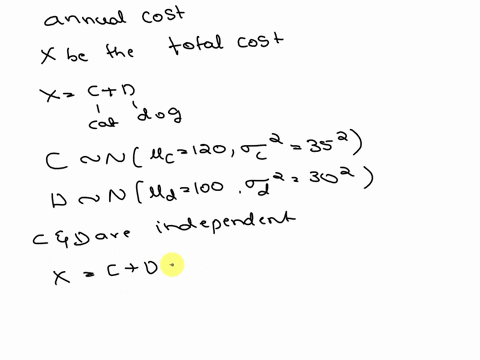 annual cost
X be the total cost
X = C+D
cat dog
C ~ N ( μc=120, σc² = 35² )
D ~ N ( μd=100, σd² = 30² )
C & D are independent
X = C+D